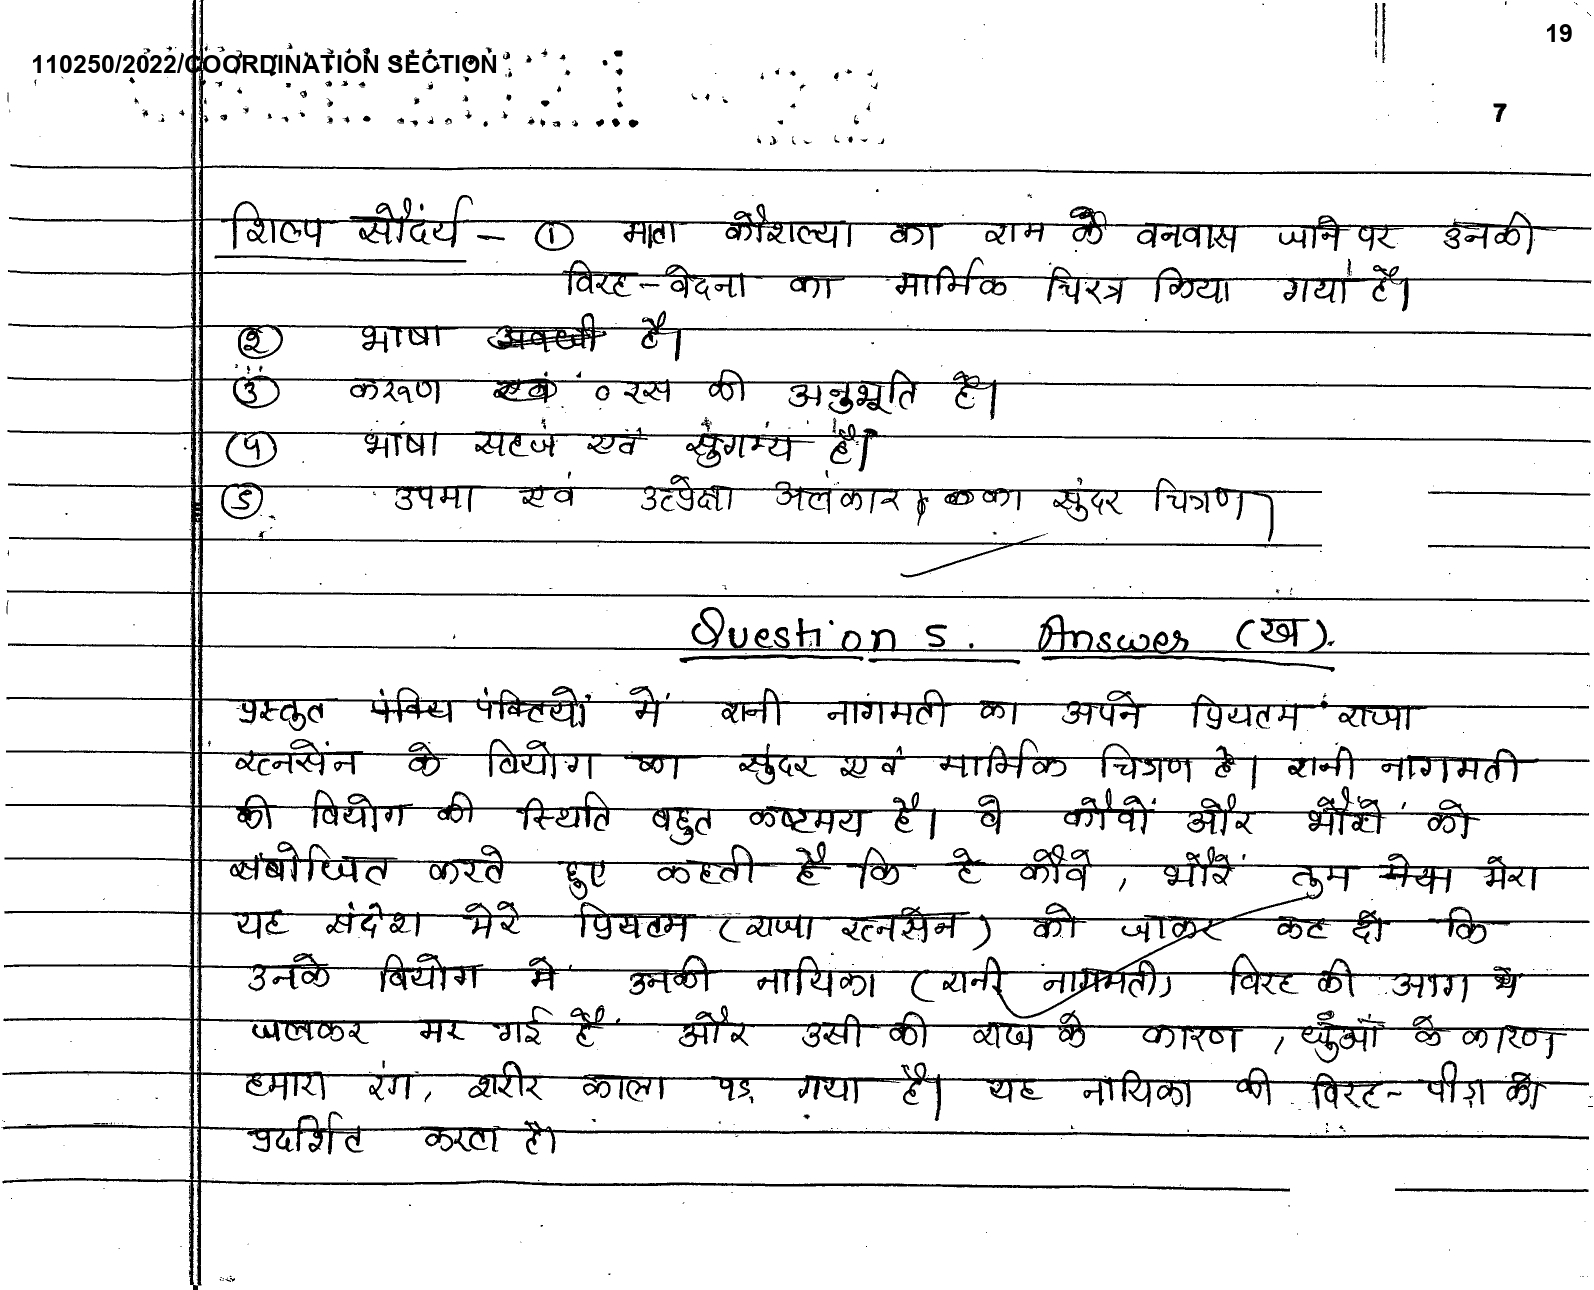 19
110250/2022/COORDINATION SECTION
7
शिल्प सौदंर्य - ① माता कौशल्या का राम के वनवास जाने पर उनकी
विरह-वेदना का मार्मिक चित्रण किया गया है।
② भाषा है।
③ करूण रस की अनुभूति है।
④ भाषा सहज एवं सुगम्य है।
⑤ उपमा एवं उत्प्रेक्षा अलंकार का सुंदर चित्रण।
Question 5. Answer (ख).
प्रस्तुत पंक्तियों में रानी नागमती का अपने प्रियतम राजा
रत्नसेन के वियोग का सुंदर एवं मार्मिक चित्रण है। रानी नागमती
की वियोग की स्थिति बहुत कष्टमय है। वे कौवों और भौंरों को
संबोधित करते हुए कहती है कि हे कौवे, भौंरें तुम मेरा
यह संदेश मेरे प्रियतम (राजा रत्नसेन) को जाकर कह दो कि
उनके वियोग में उनकी नायिका (रानी नागमती) विरह की आग में
जलकर मर गई है और उसी की राख के कारण, धुँआँ के कारण
हमारा रंग, शरीर काला पड़ गया है। यह नायिका की विरह-पीड़ा को
प्रदर्शित करता है।